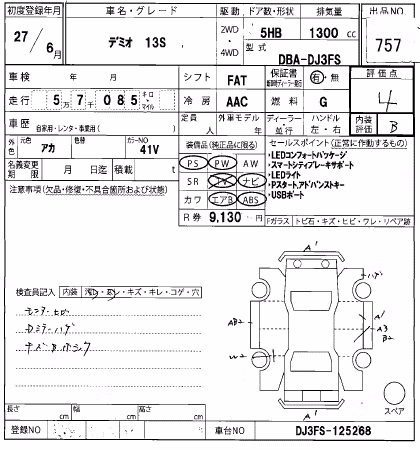 初度登録年月 車名・グレード 駆動 ドア数・形状 排気量 出品NO
27/6月 デミオ 13S 2WD・4WD 5HB 1300cc 757
型式 DBA-DJ3FS
車検 年 月 シフト FAT 保証書 有・無 評価点 4
走行 5万7千085キロ・マイル 冷房 AAC 燃料 G
車歴 自家用・レンタ・事業用( ) 定員 人 外車モデル 年 ディーラー・並行 ハンドル 左・右 内装評価 B
外色 元色 アカ カラーNO 41V 装備品(純正品に限る) セールスポイント(正常に作動するもの)
名義変更期限 月 日迄 積載 t PS PW AW
・LEDコンフォートパッケージ
・スマートシティブレーキサポート
注意事項(欠品・修復・不具合箇所および状態) SR TV ナビ
・LEDライト
・Pスタート,アドバンストキー
カワ エアB ABS
・USBポート
R券 9,130円 Fガラス トビ石・キズ・ヒビ・ワレ・リペア跡
A1
ハゲ
検査員記入 内装 汚・キズ・キレ・コゲ・穴
モンター ヒビ
Dミラー ハゲ
ナビBホシク
AB2
A1
A3
B2
W2
A1
スペア
長さ cm 幅 cm 高さ cm
登録NO 車台NO DJ3FS-125268